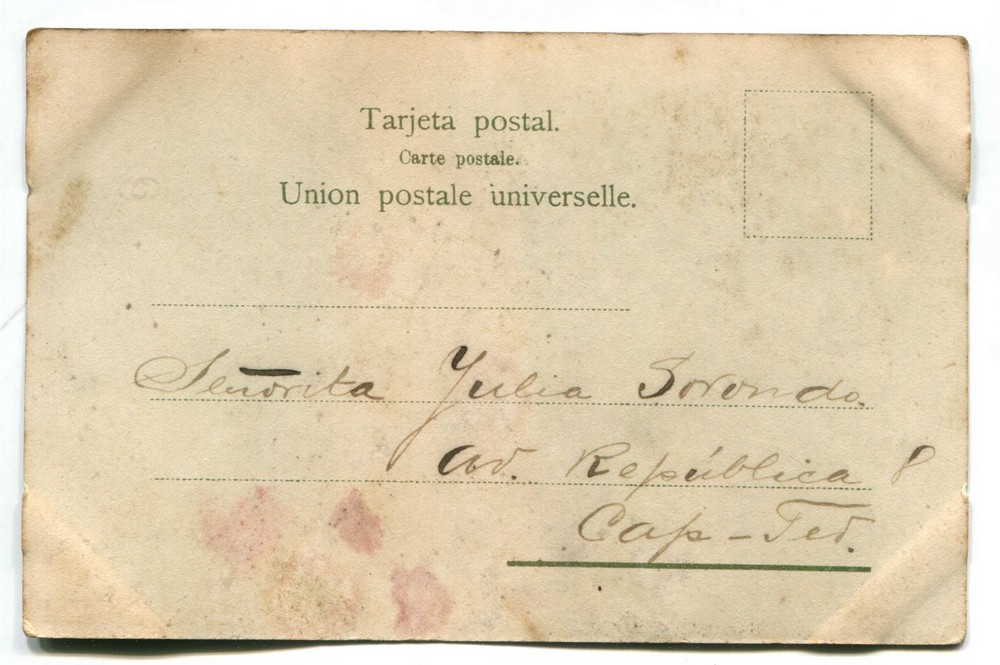 Tarjeta postal.
Carte postale.
Union postale universelle.
Señorita Julia Sorondo.
Av. República 8
Cap - Fed.